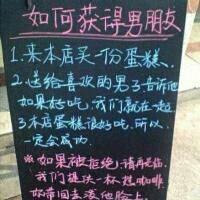 如何获得男朋友
1.来本店买一份蛋糕.
2.送给喜欢的男子告诉他
如果好吃,我们就在一起
3.本店蛋糕很好吃.所以
一定会成功.
※如果被拒绝,请再来临.
我们提供一杯热咖啡
你带回去泼他脸上.